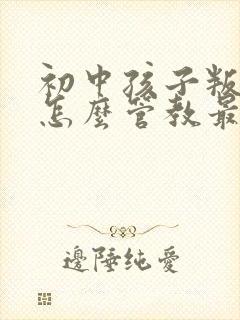 初中孩子叛
怎麼管教最
邊陲纯愛